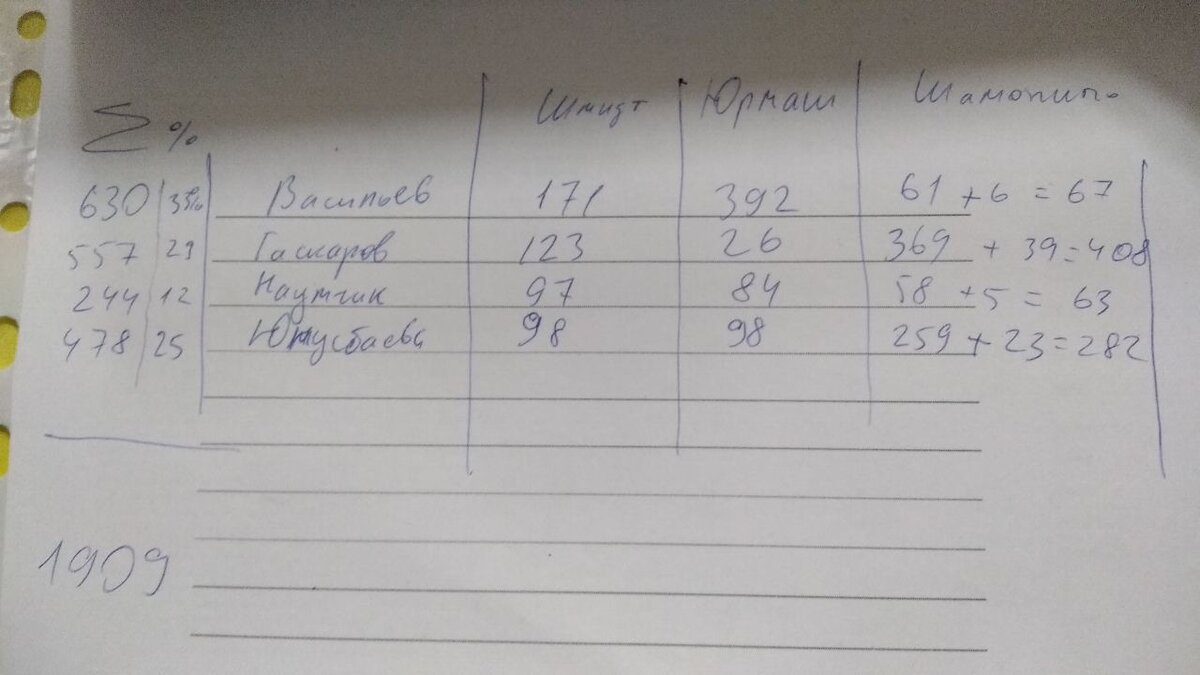 Σ % Шмидт Юрмаш Шамонино
630 33% Васильев 171 392 61 + 6 = 67
557 29 Гаскаров 123 26 369 + 39 = 408
244 12 Наумчик 97 84 58 + 5 = 63
478 25 Юнусбаева 98 98 259 + 23 = 282
1909